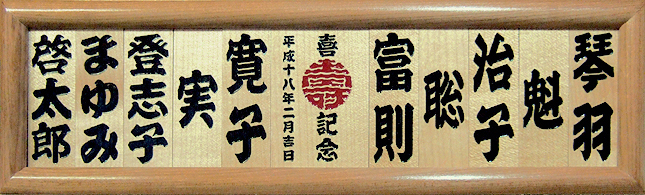 琴羽
魁
治子
聡
富則
喜寿記念
平成十八年二月吉日
寛子
実
登志子
まゆみ
啓太郎